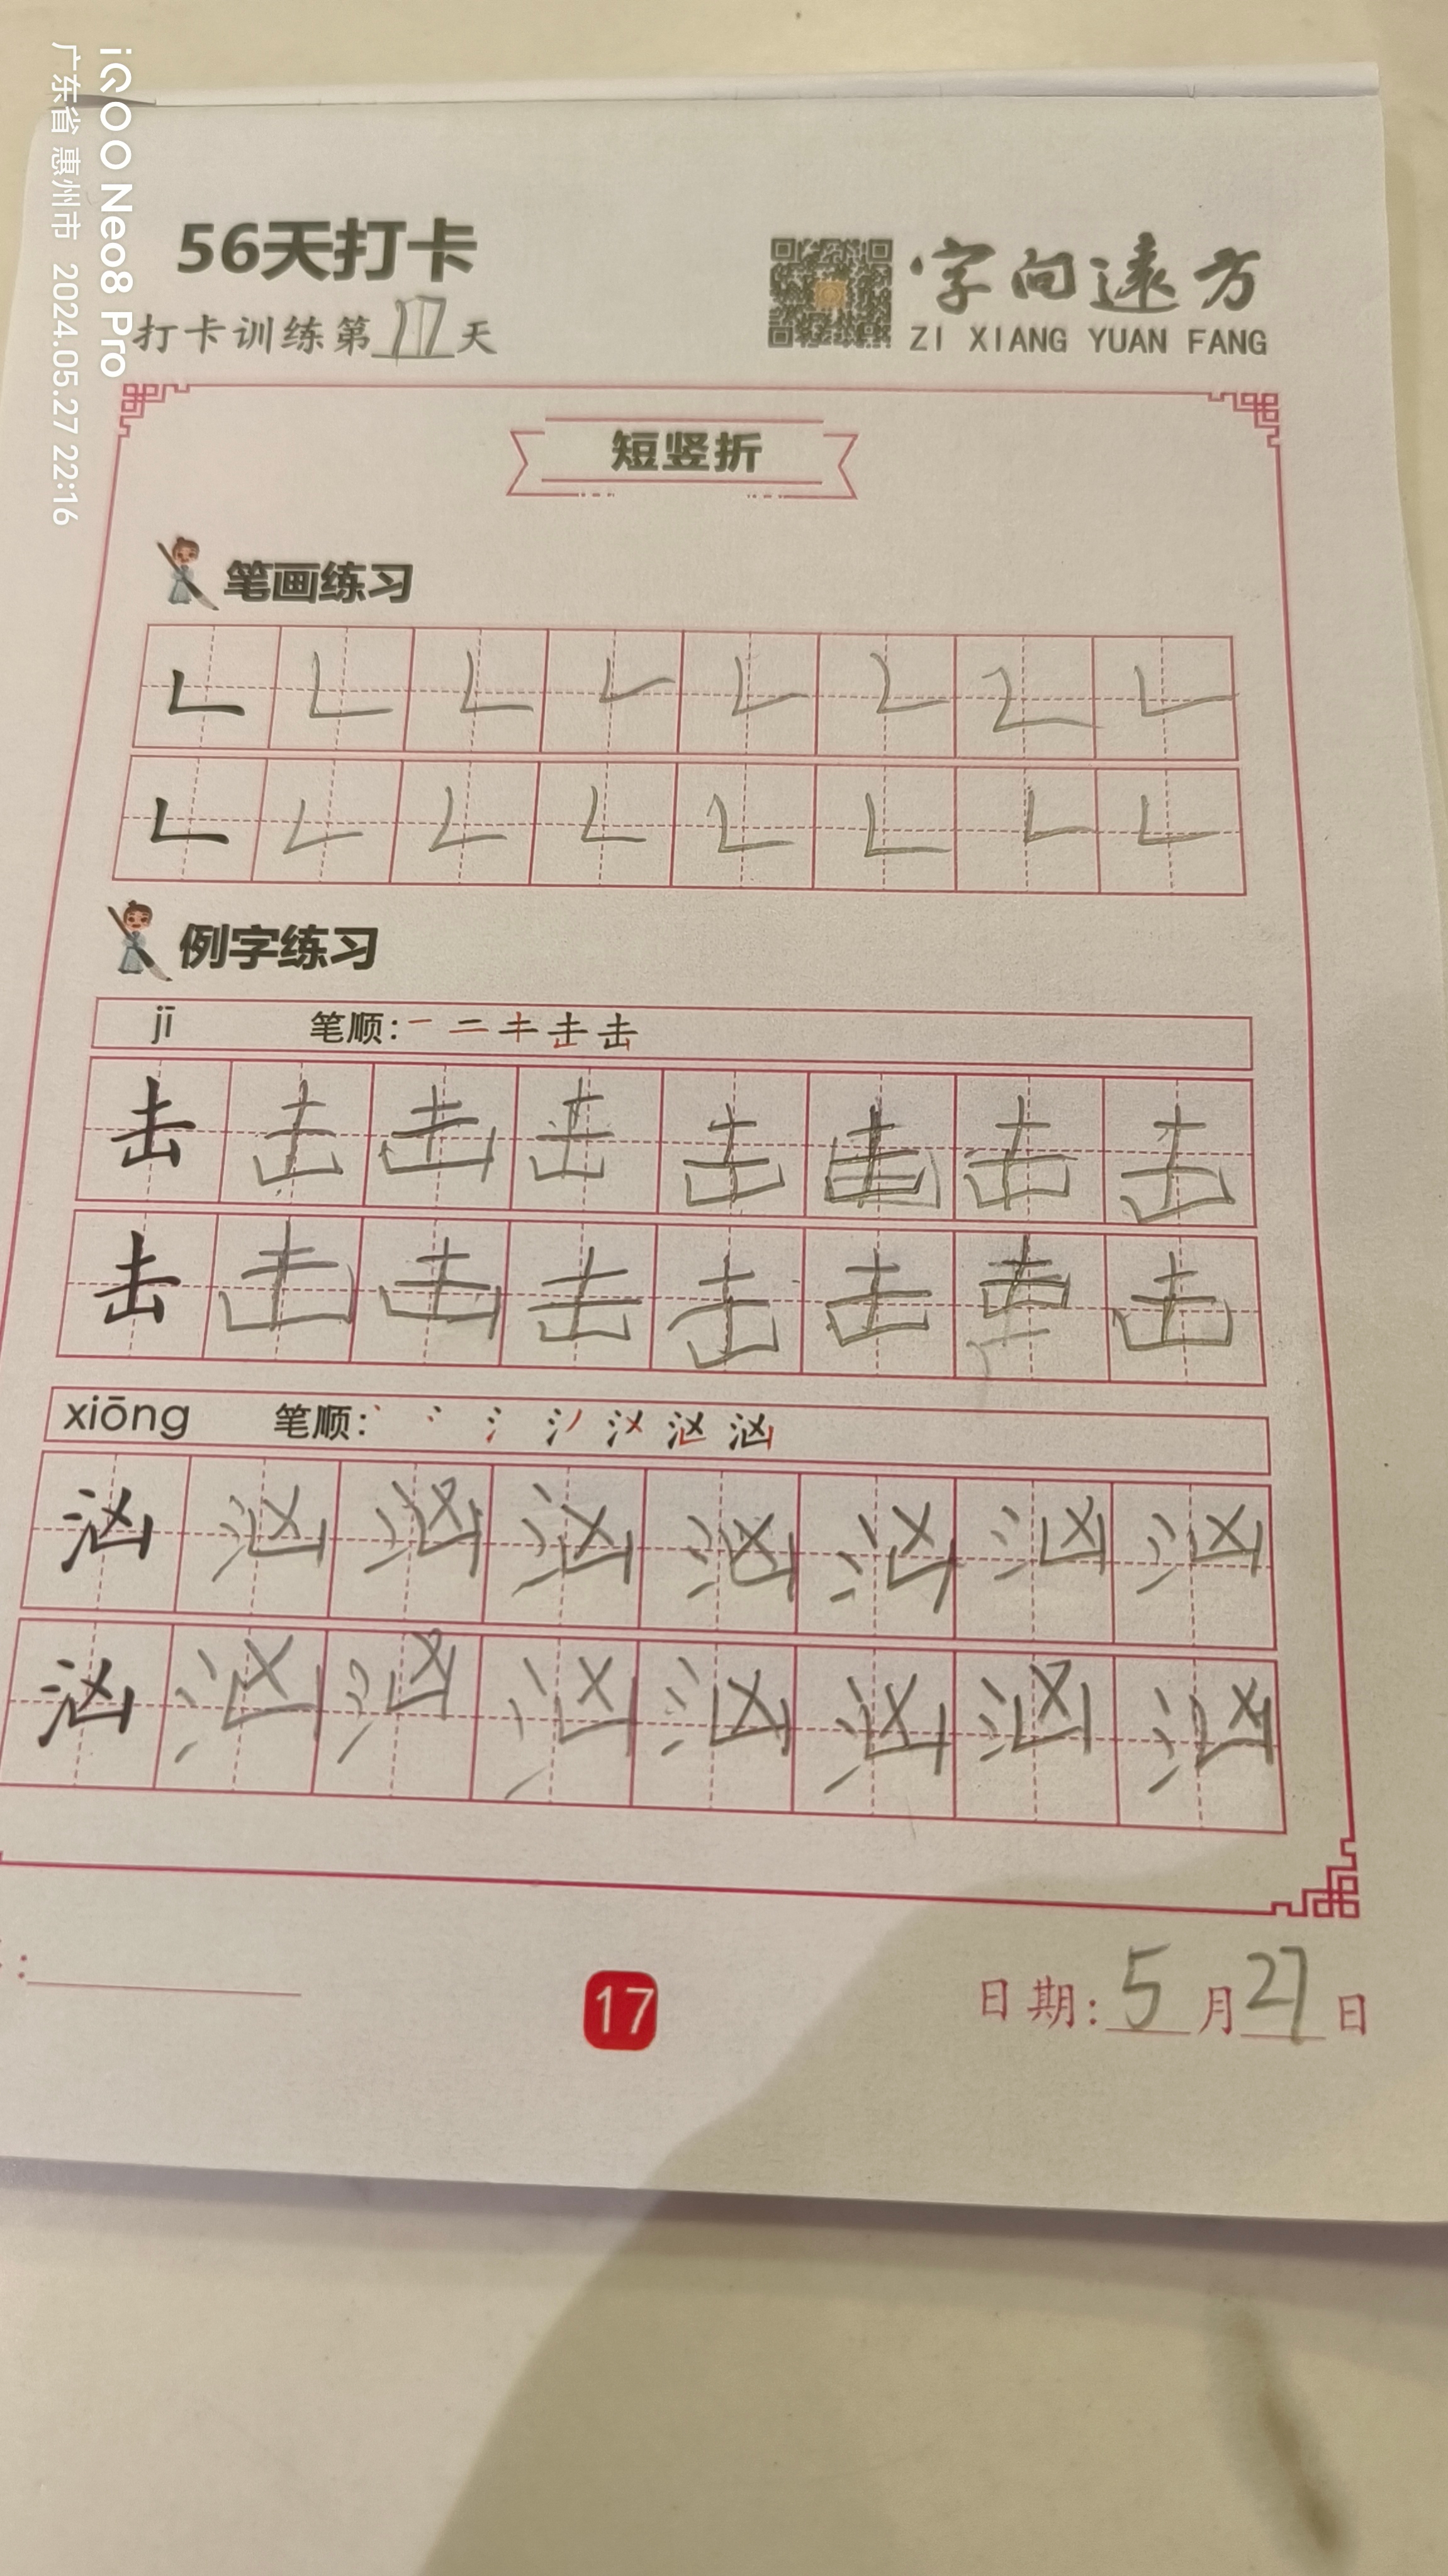 iQOO Neo8 Pro
广东省 惠州市 2024.05.27 22:16
56天打卡
打卡训练第17天
字向远方
ZI XIANG YUAN FANG
短竖折
笔画练习
𠃊 𠃊 𠃊 𠃊 𠃊 𠃊 𠃊 𠃊
𠃊 𠃊 𠃊 𠃊 𠃊 𠃊 𠃊 𠃊
例字练习
jī 笔顺:
击 击 击 击 击 击 击 击
击 击 击 击 击 击 击 击
xiōng 笔顺:
汹 汹 汹 汹 汹 汹 汹 汹
汹 汹 汹 汹 汹 汹 汹 汹
:
17
日期:5月27日